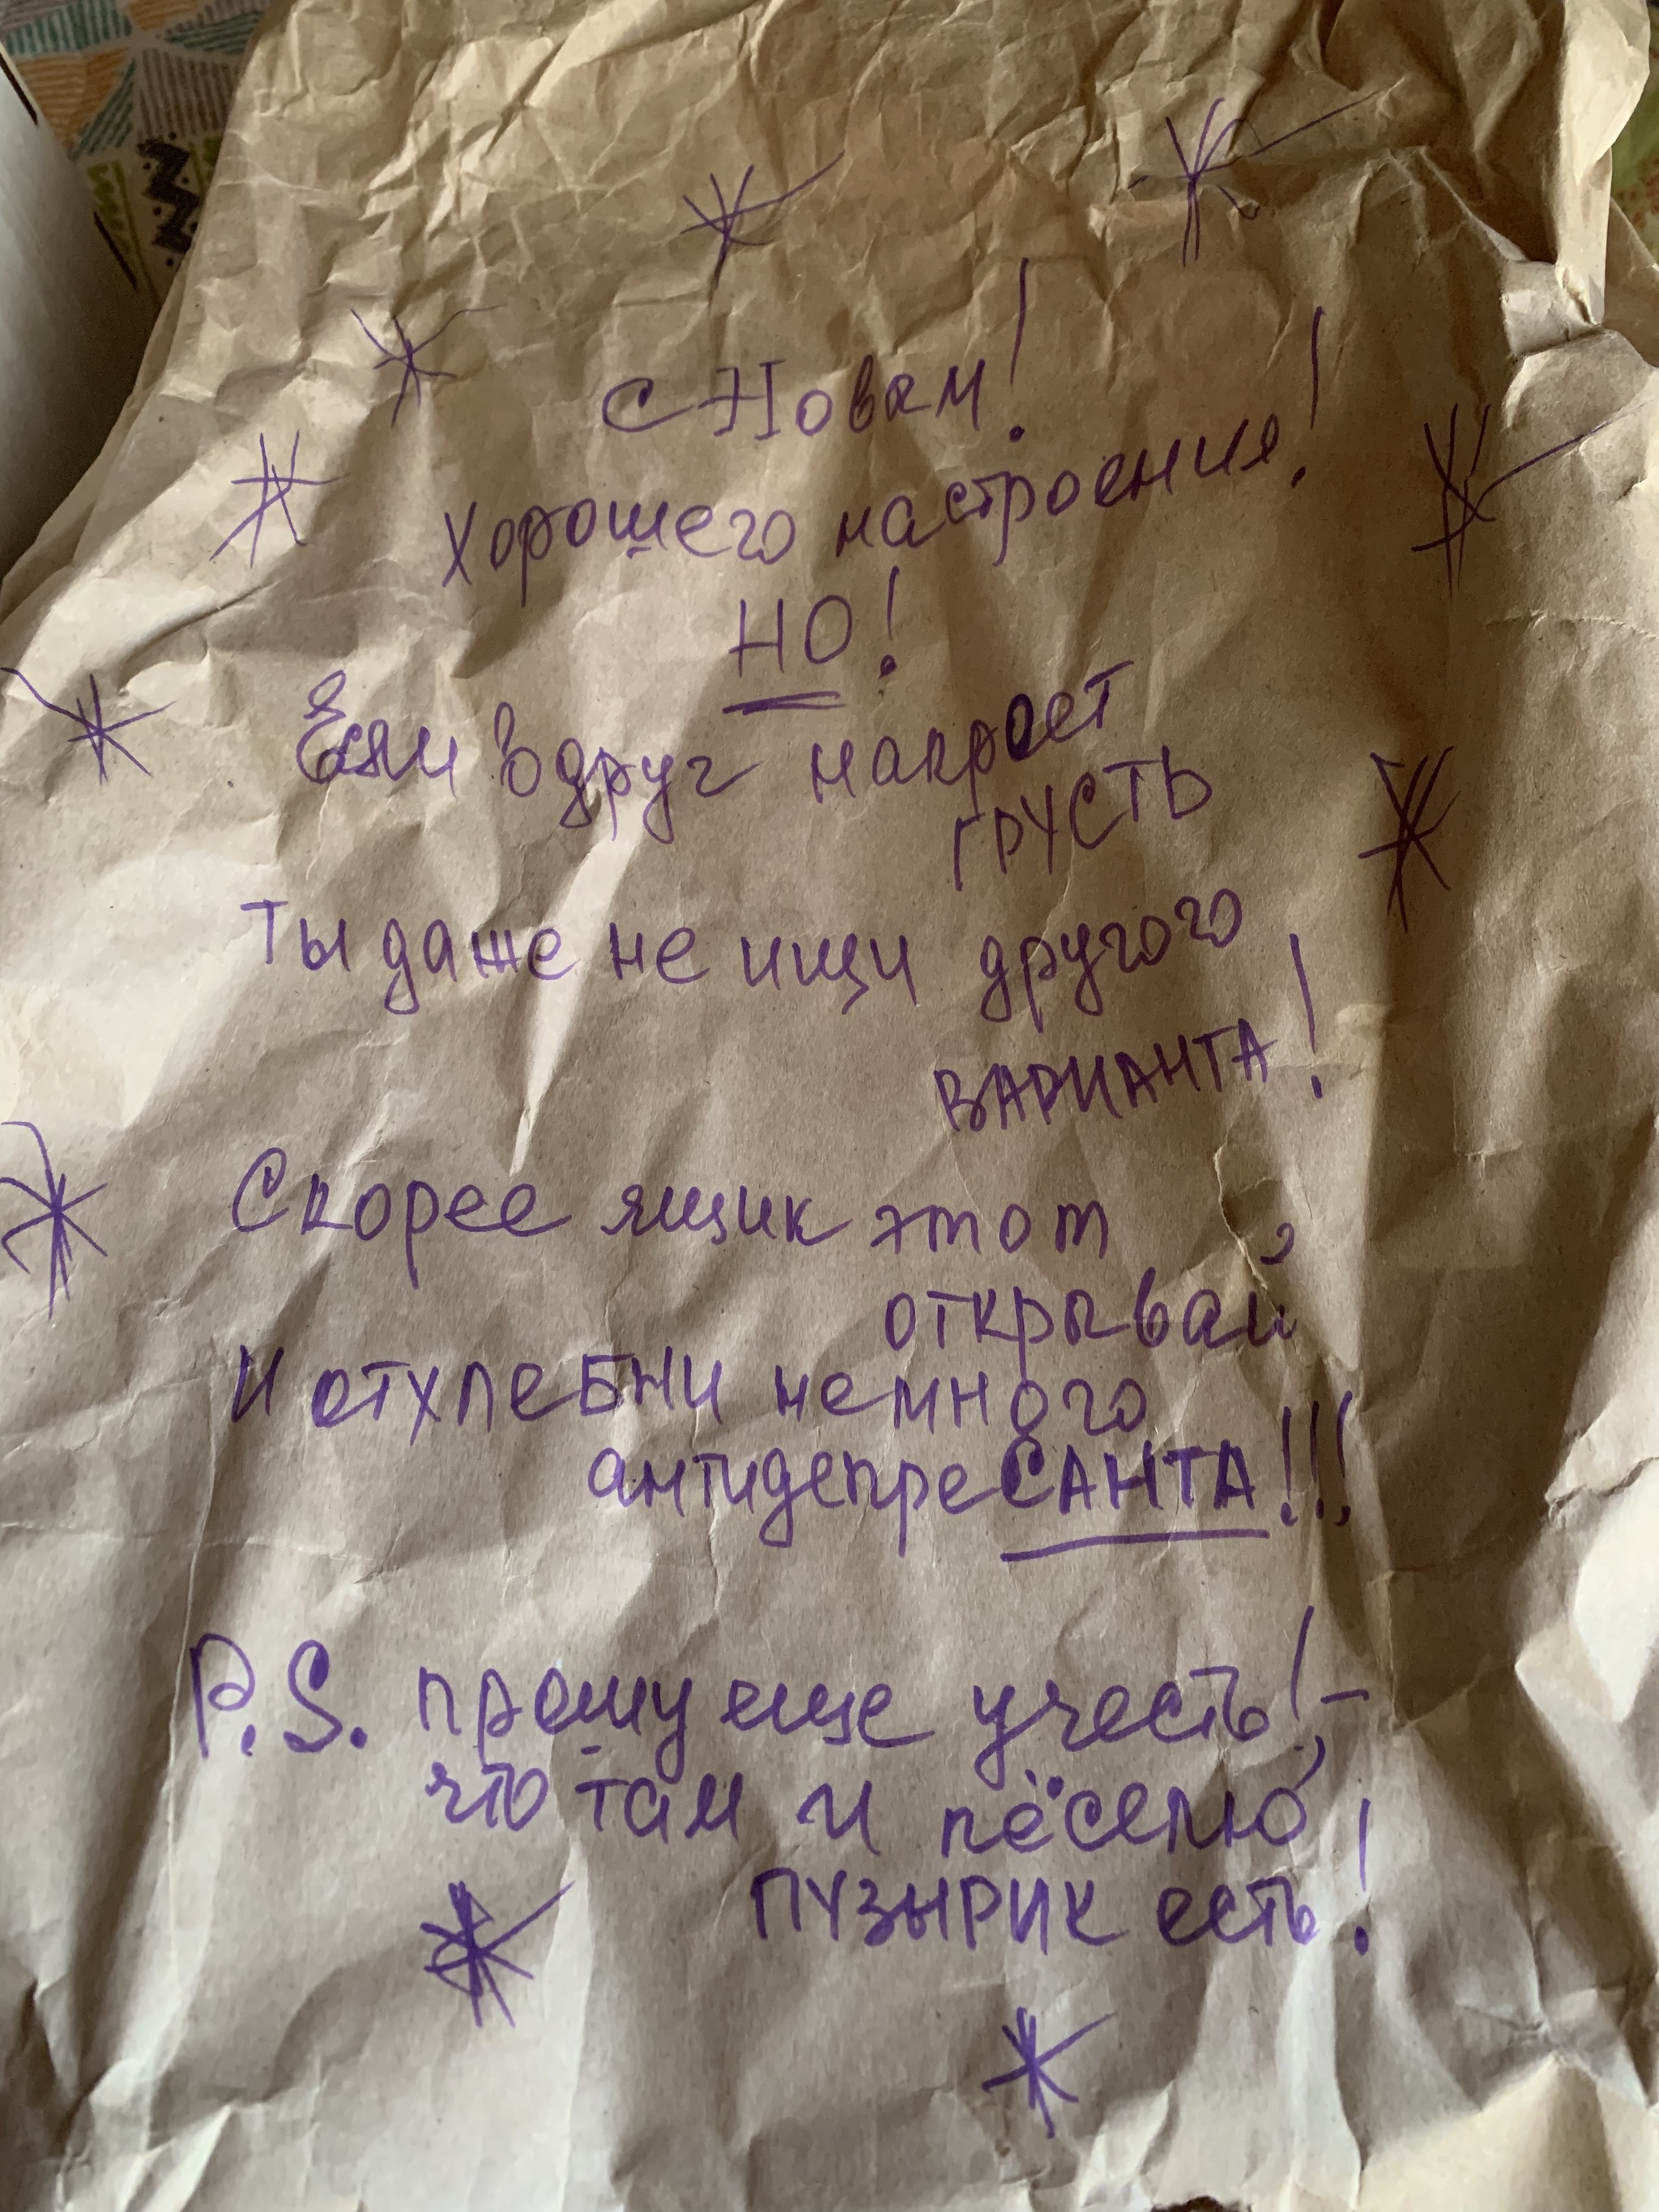 С Новым!
Хорошего настроения!
НО!
Если вдруг накроет
ГРУСТЬ
Ты даже не ищи другого
ВАРИАНТА!
Скорее ящик этот
открывай,
И отхлебни немного
антидепреСАНТА!!!
P.S. прошу еще учесть! -
что там и пёселю,
ПУЗЫРИК есть!